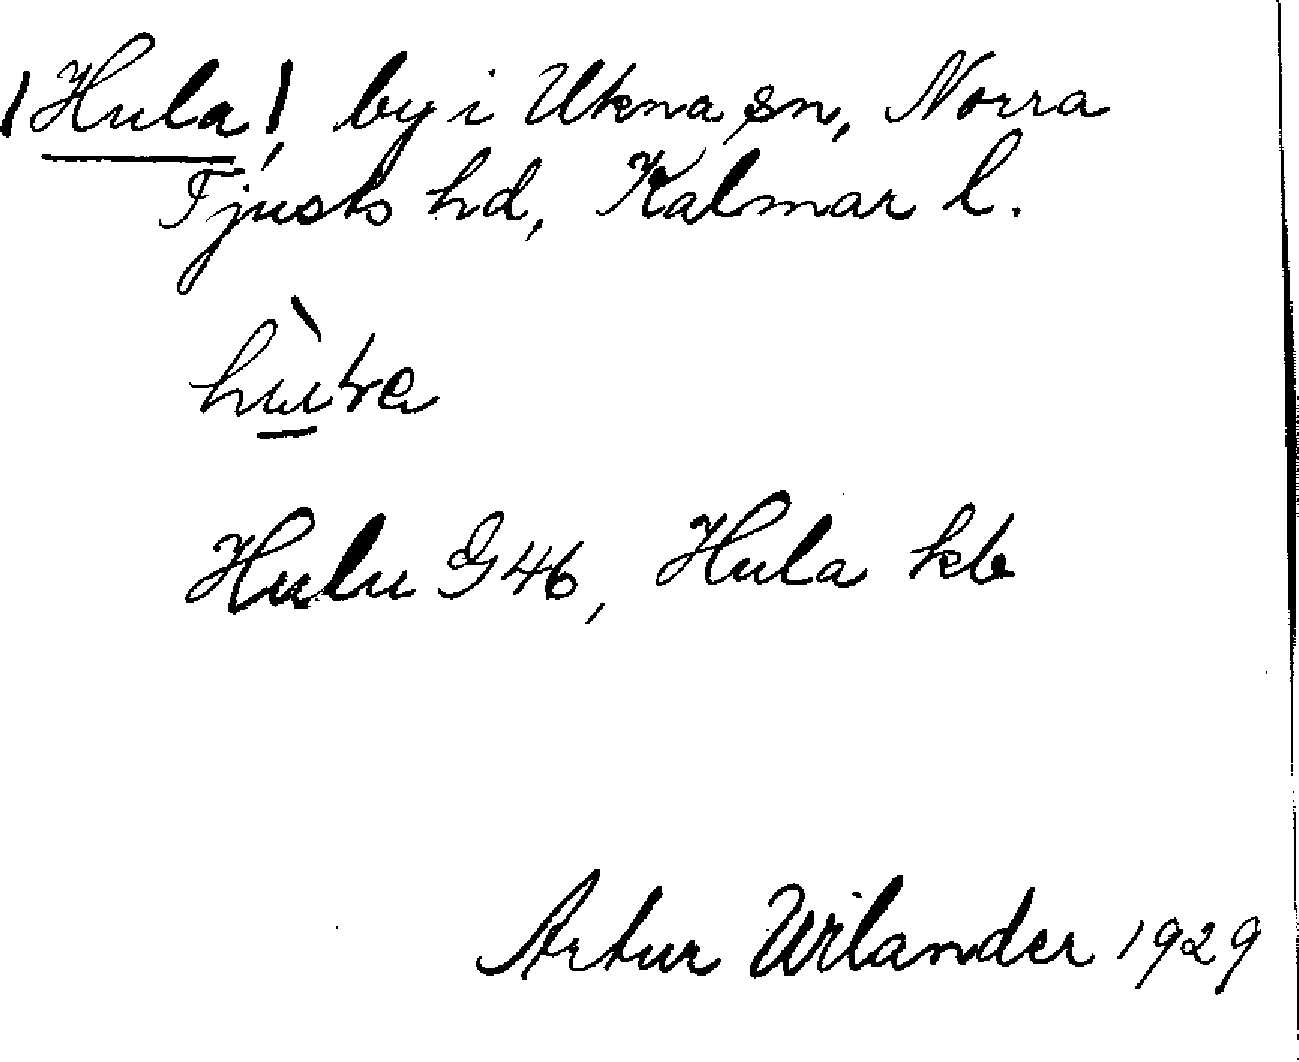 |Hula|, by i Ukna sn, Norra
Tjusts hd, Kalmar l.
Hulu G46, Hula kb
Artur Wilander 1929